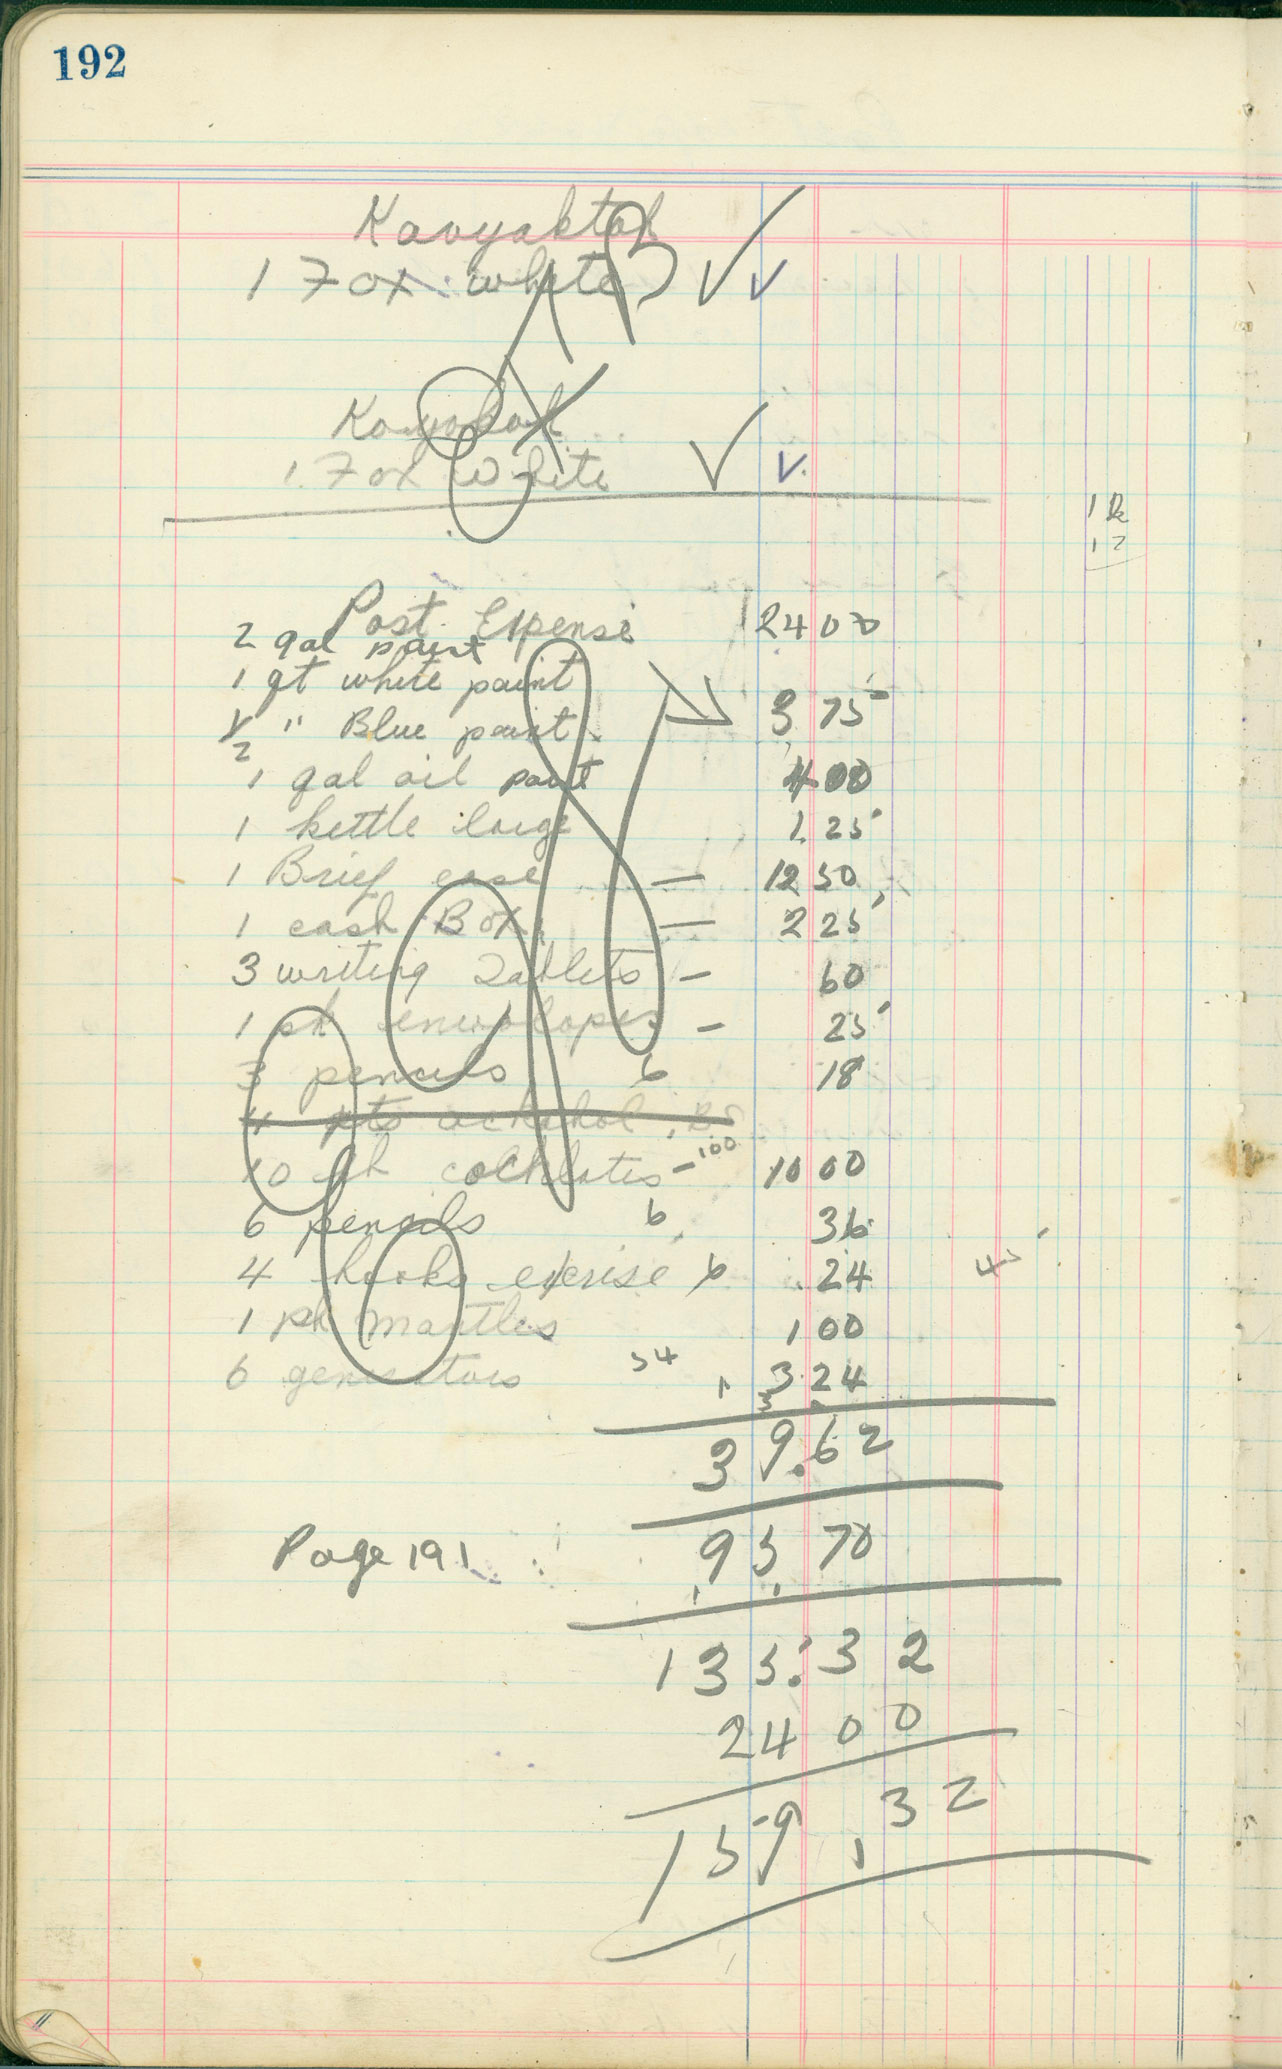 192
Kavyaktok
1 Fox white
1 Fox White
12
12
Post Expense 24 00
2 gal paint
1 qt white paint
1/2 " Blue paint 3 75
1 gal oil paint 4 00
1 kettle large 1 25
1 Brief case — 12 50
1 cash Box — 2 25
3 writing Tablets — 60
1 pk envolopes — 25
3 pencils 6 18
4 pts
10 pk - 100 10 00
6 pencils 6 36
4 books exerise 6 24
1 pk mantles 1 00
6 generators 54 3 24
39.62
Page 191 95 70
135.32
24 00
159.32